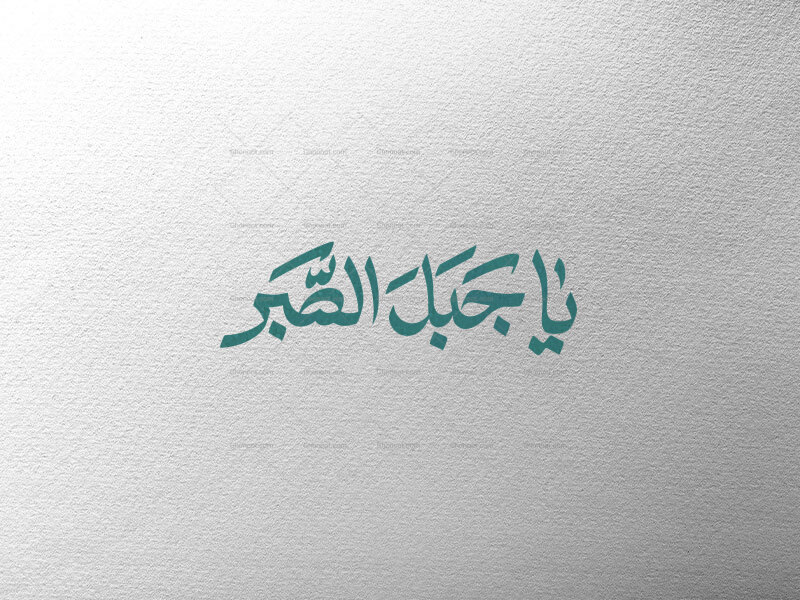 يَا جَبَلَ الصَّبَر